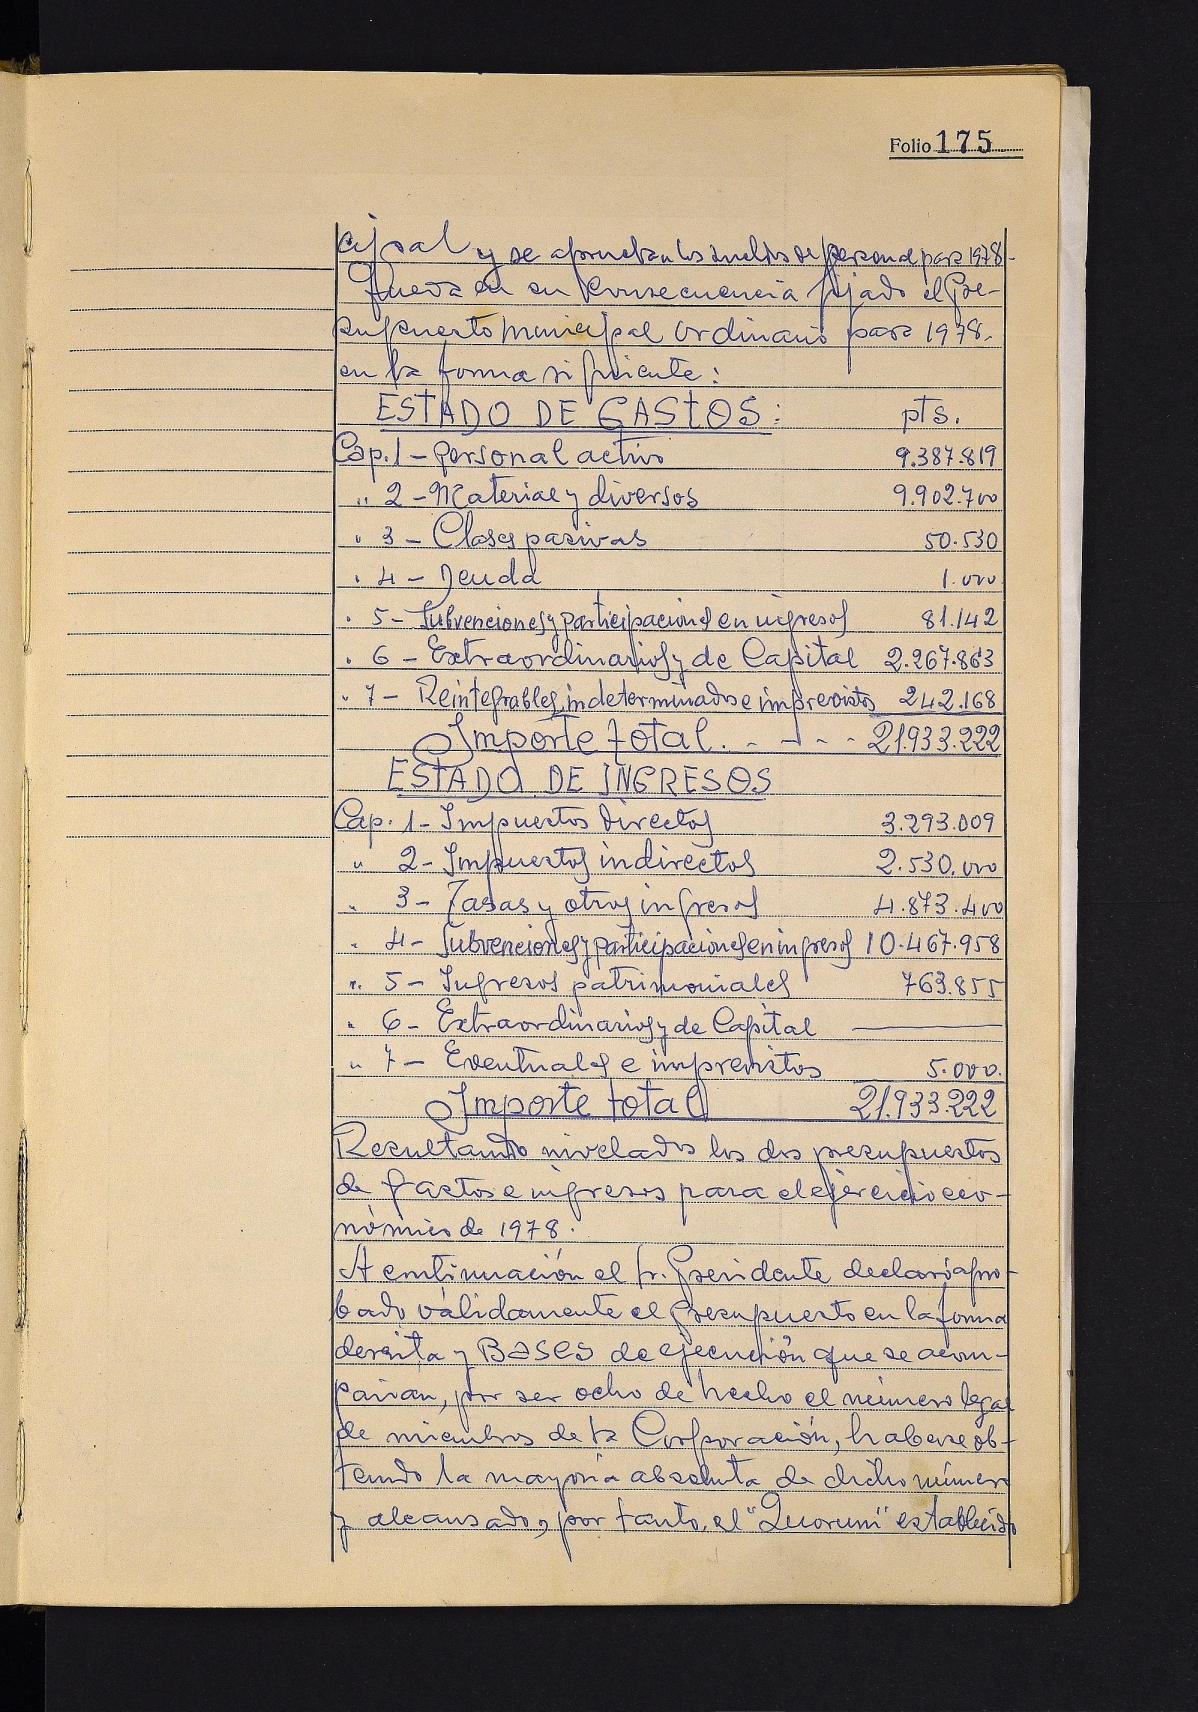 Folio 175
cipal y se aprueban los sueldos de personal para 1978.
Queda en su consecuencia fijado el Pre-
supuesto municipal ordinario para 1978.
en la forma siguiente:
ESTADO DE GASTOS: pts.
Cap. 1 - Personal activo 9.387.819
" 2 - Material y diversos 9.902.700
" 3 - Clases pasivas 50.530
" 4 - Deuda 1.000
" 5 - Subvenciones y participaciones en ingresos 81.142
" 6 - Extraordinarios y de Capital 2.267.863
" 7 - Reintegrables, indeterminados e imprevistos 242.168
Importe total. - - - - 21.933.222
ESTADO DE INGRESOS
Cap. 1 - Impuestos directos 3.293.009
" 2 - Impuestos indirectos 2.530.000
" 3 - Tasas y otros ingresos 4.873.400
" 4 - Subvenciones y participaciones en ingresos 10.467.958
" 5 - Ingresos patrimoniales 763.855
" 6 - Extraordinarios y de Capital ———
" 7 - Eventuales e imprevistos 5.000.
Importe total 21.933.222
Resultando nivelados los dos presupuestos
de gastos e ingresos para el ejercicio eco-
nómico de 1978.
A continuación el Sr. Presidente declaró apro-
bado válidamente el presupuesto en la forma
descrita y BASES de ejecución que se acom-
pañan, por ser ocho de hecho el número legal
de miembros de la Corporación, haberse ob-
tenido la mayoría absoluta de dicho número
y alcansado, por tanto, el "Quorum" establecido